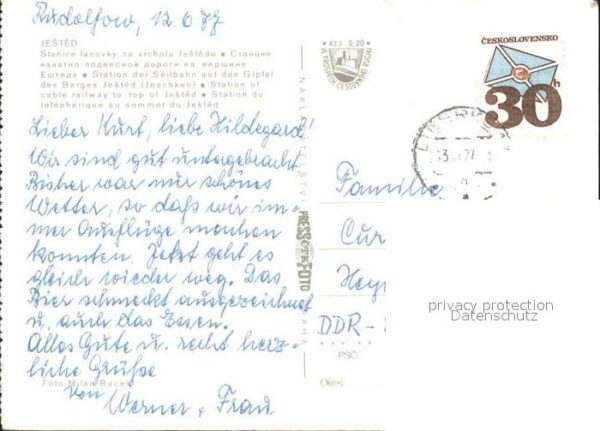 Rudolfow, 12.6.77
JEŠTĚD
Stanice lanovky na vrcholu Ještědu • Станция
канатно-подвесной дороги на вершине
Ештеда • Station der Seilbahn auf den Gipfel
des Berges Ještěd (Jeschken) • Station of
cable railway to top of Ještěd • Station du
téléphérique au sommet du Ještěd
Lieber Kurt, liebe Hildegard!
Wir sind gut untergebracht
Bisher war nur schönes
Wetter, so daß wir im-
mer Ausflüge machen
konnten. Jetzt geht es
gleich wieder weg. Das
Bier schmeckt ausgezeichnet
u. auch das Essen.
Alles Gute u. recht herz-
liche Grüße
Von
Werner + Frau
Foto Milan Racek
NAKLADATELSTVÍ
PRESSFOTO
PRAHA
Kčs 0,20
VE PROSPĚCH CESTOVNÍHO RUCHU
ČESKOSLOVENSKO
30h
Familie
Cur
Hey
DDR-
PSČ
Okres
privacy protection
Datenschutz